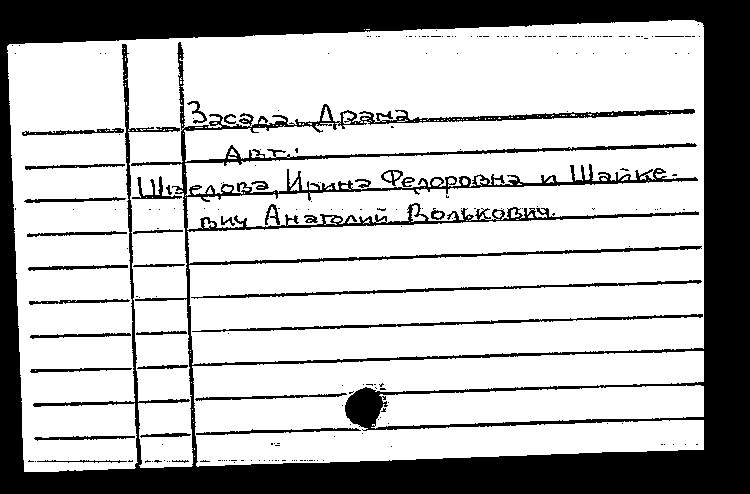 Засада. Драма.
Авт.:
Шведова, Ирина Федоровна и Шайке-
вич Анатолий Волькович.